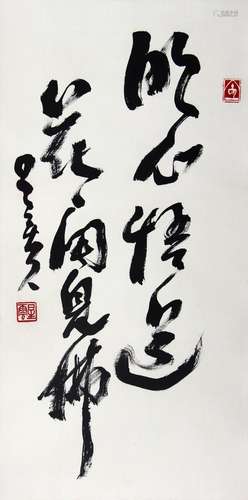 明心悟道
花開見佛
星雲